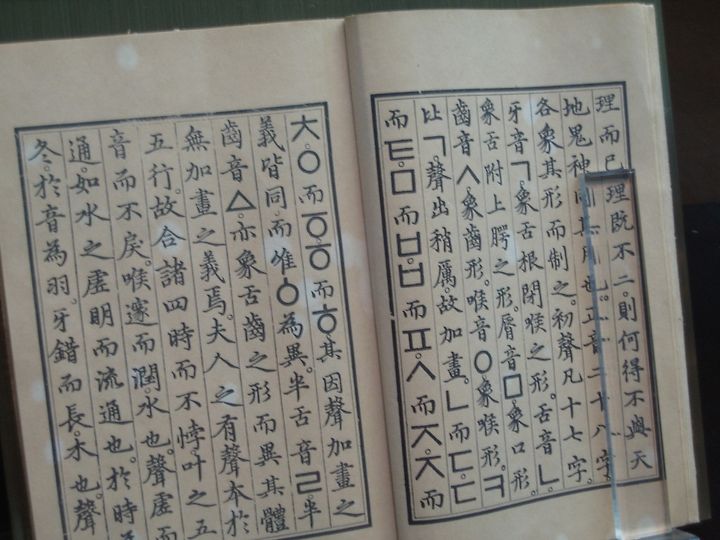 理而已。理既不二。則何得不與天
地鬼神同其用也。正音二十八字。
各象其形而制之。初聲凡十七字。
牙音ㄱ。象舌根閉喉之形。舌音ㄴ。
象舌附上腭之形。脣音ㅁ。象口形。
齒音ㅅ。象齒形。喉音ㅇ。象喉形。ㅋ
比ㄱ。聲出稍厲。故加畫。ㄴ而ㄷ。ㄷ
而ㅌ。ㅁ而ㅂ。ㅂ而ㅍ。ㅅ而ㅈ。ㅈ而
ㅊ。ㅇ而ㆆ。ㆆ而ㅎ。其因聲加畫之
義皆同。而惟ㆁ為異。半舌音ㄹ。半
齒音ㅿ。亦象舌齒之形而異其體。
無加畫之義焉。夫人之有聲本於
五行。故合諸四時而不悖。叶之五
音而不戾。喉邃而潤。水也。聲虛而
通。如水之虛明而流通也。於時為
冬。於音為羽。牙錯而長。木也。聲